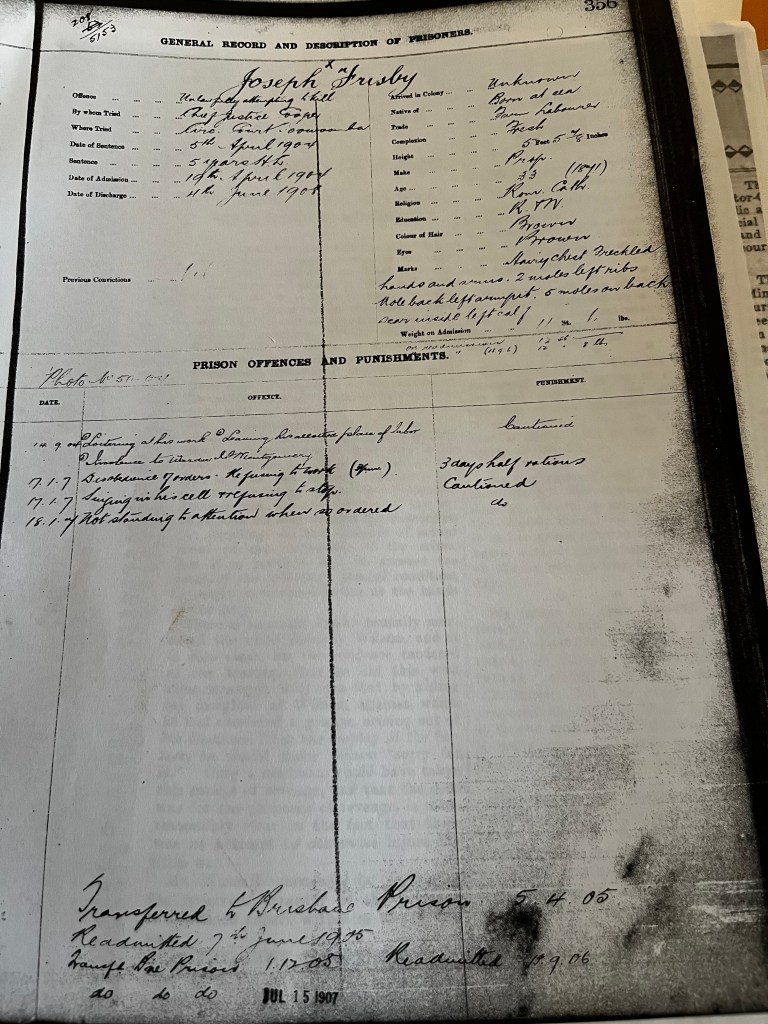 356
208
5153
GENERAL RECORD AND DESCRIPTION OF PRISONERS.
Joseph Frisby
Offence ... Unlawfully attempting to kill
By whom Tried ... Chief Justice Cooper
Where Tried ... Circ. Court
Date of Sentence ... 5th April 1904
Sentence ... 5 years H L
Date of Admission ... 19th April 1904
Date of Discharge ... 4th June 1908
Previous Convictions ...
Arrived in Colony ... Unknown
Native of ... Born at sea
Trade ... Farm Labourer
Complexion ... Fresh
Height ... 5 Feet 5 7/8 Inches
Make ... Prop.
Age ... 33 (1871)
Religion ... Rom. Cath.
Education ... R. & W.
Colour of Hair ... Brown
Eyes ... Brown
Marks ... Hairy chest Freckled
hands and arms. 2 moles left ribs
Mole back left armpit. 5 moles on back
scar inside left calf
Weight on Admission ... 11 St. 1 lbs.
on readmission
PRISON OFFENCES AND PUNISHMENTS.
Photo No
DATE. OFFENCE. PUNISHMENT.
14.9.04 Loitering at his work Leaving his allotted place of labor Cautioned
Insolence to Warder Montgomery
17.1.7 Disobedience of orders. Refusing to work 3 days half rations
17.1.7 Singing in his cell & refusing to stop. Cautioned
18.1.7 Not standing to attention when so ordered do
Transferred to Brisbane Prison 5.4.05
Readmitted 7th June 1905
Transfd Bne Prison 1.12.05 Readmitted 9.06
do do do JUL 15 1907